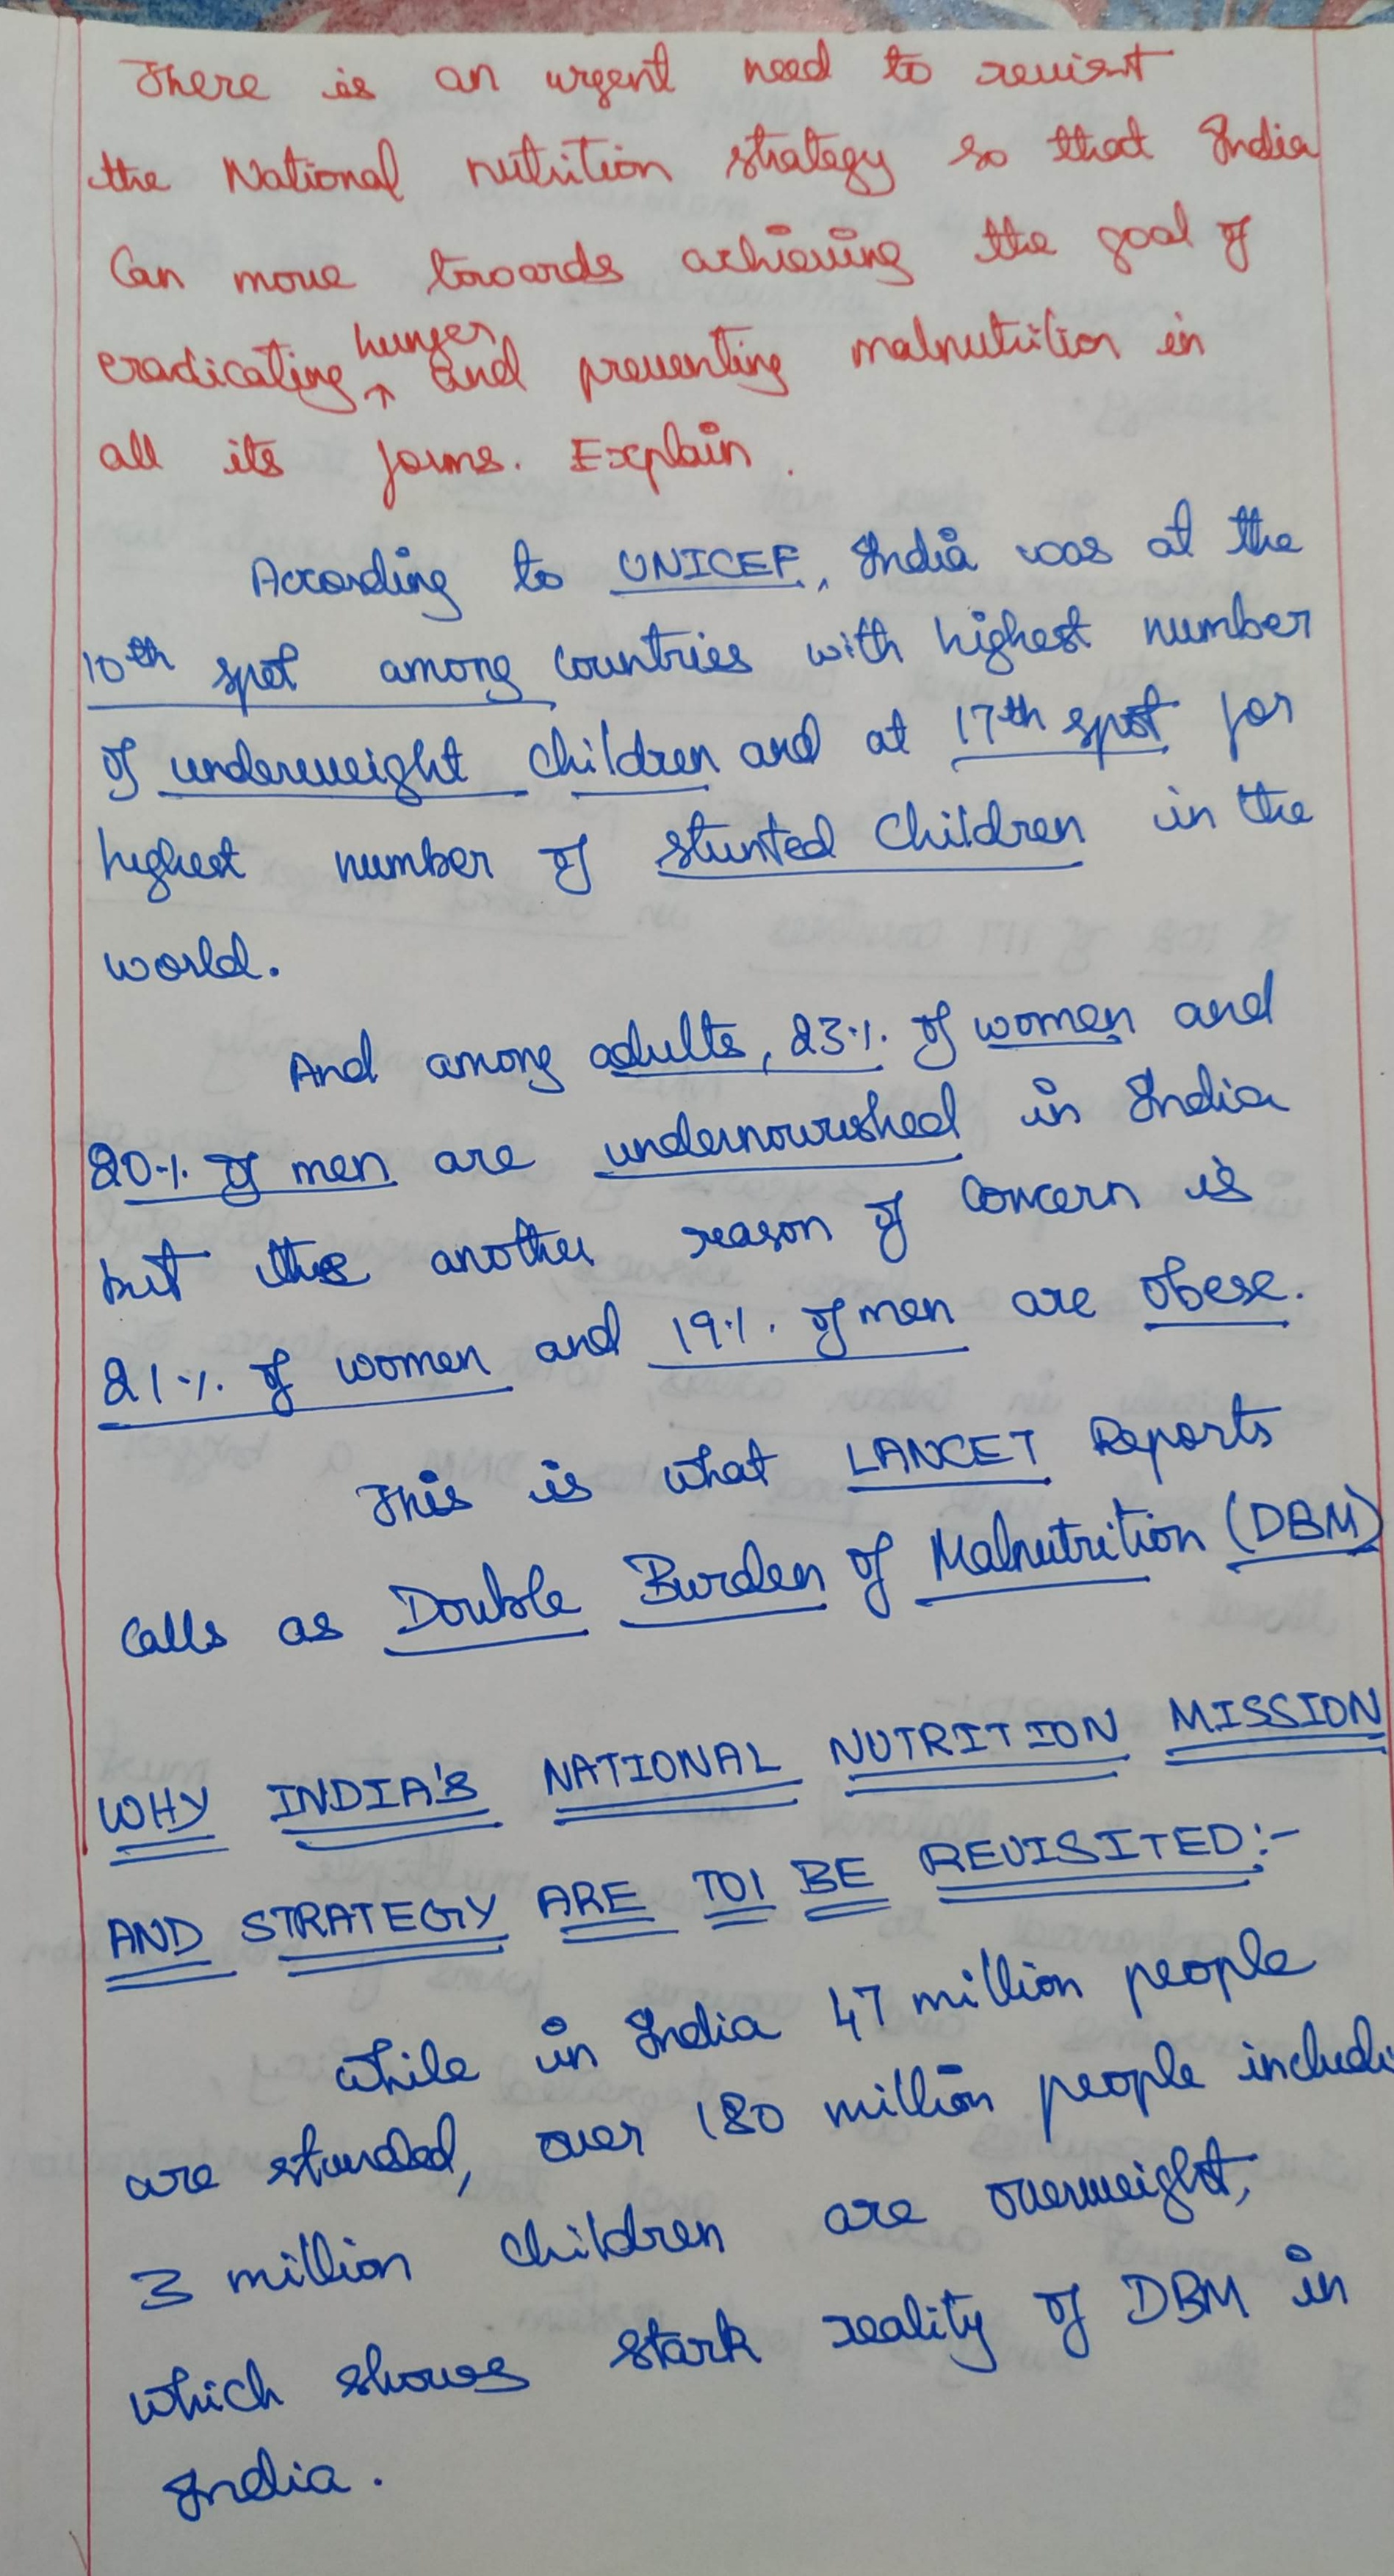 There is an urgent need to revisit
the National nutrition strategy so that India
Can move towards achieving the goal of
eradicating hunger and preventing malnutrition in
all its forms. Explain.
According to UNICEF, India was at the
10th spot among countries with highest number
of underweight children and at 17th spot for
highest number of stunted children in the
world.
And among adults, 23% of women and
20% of men are undernourished in India
but the another reason of concern is
21% of women and 19% of men are obese.
This is what LANCET Reports
calls as Double Burden of Malnutrition (DBM)
WHY INDIA'S NATIONAL NUTRITION MISSION
AND STRATEGY ARE TO BE REVISITED:-
While in India 47 million people
are stunded, over 180 million people includi
3 million children are overweight,
which shows stark reality of DBM in
India.